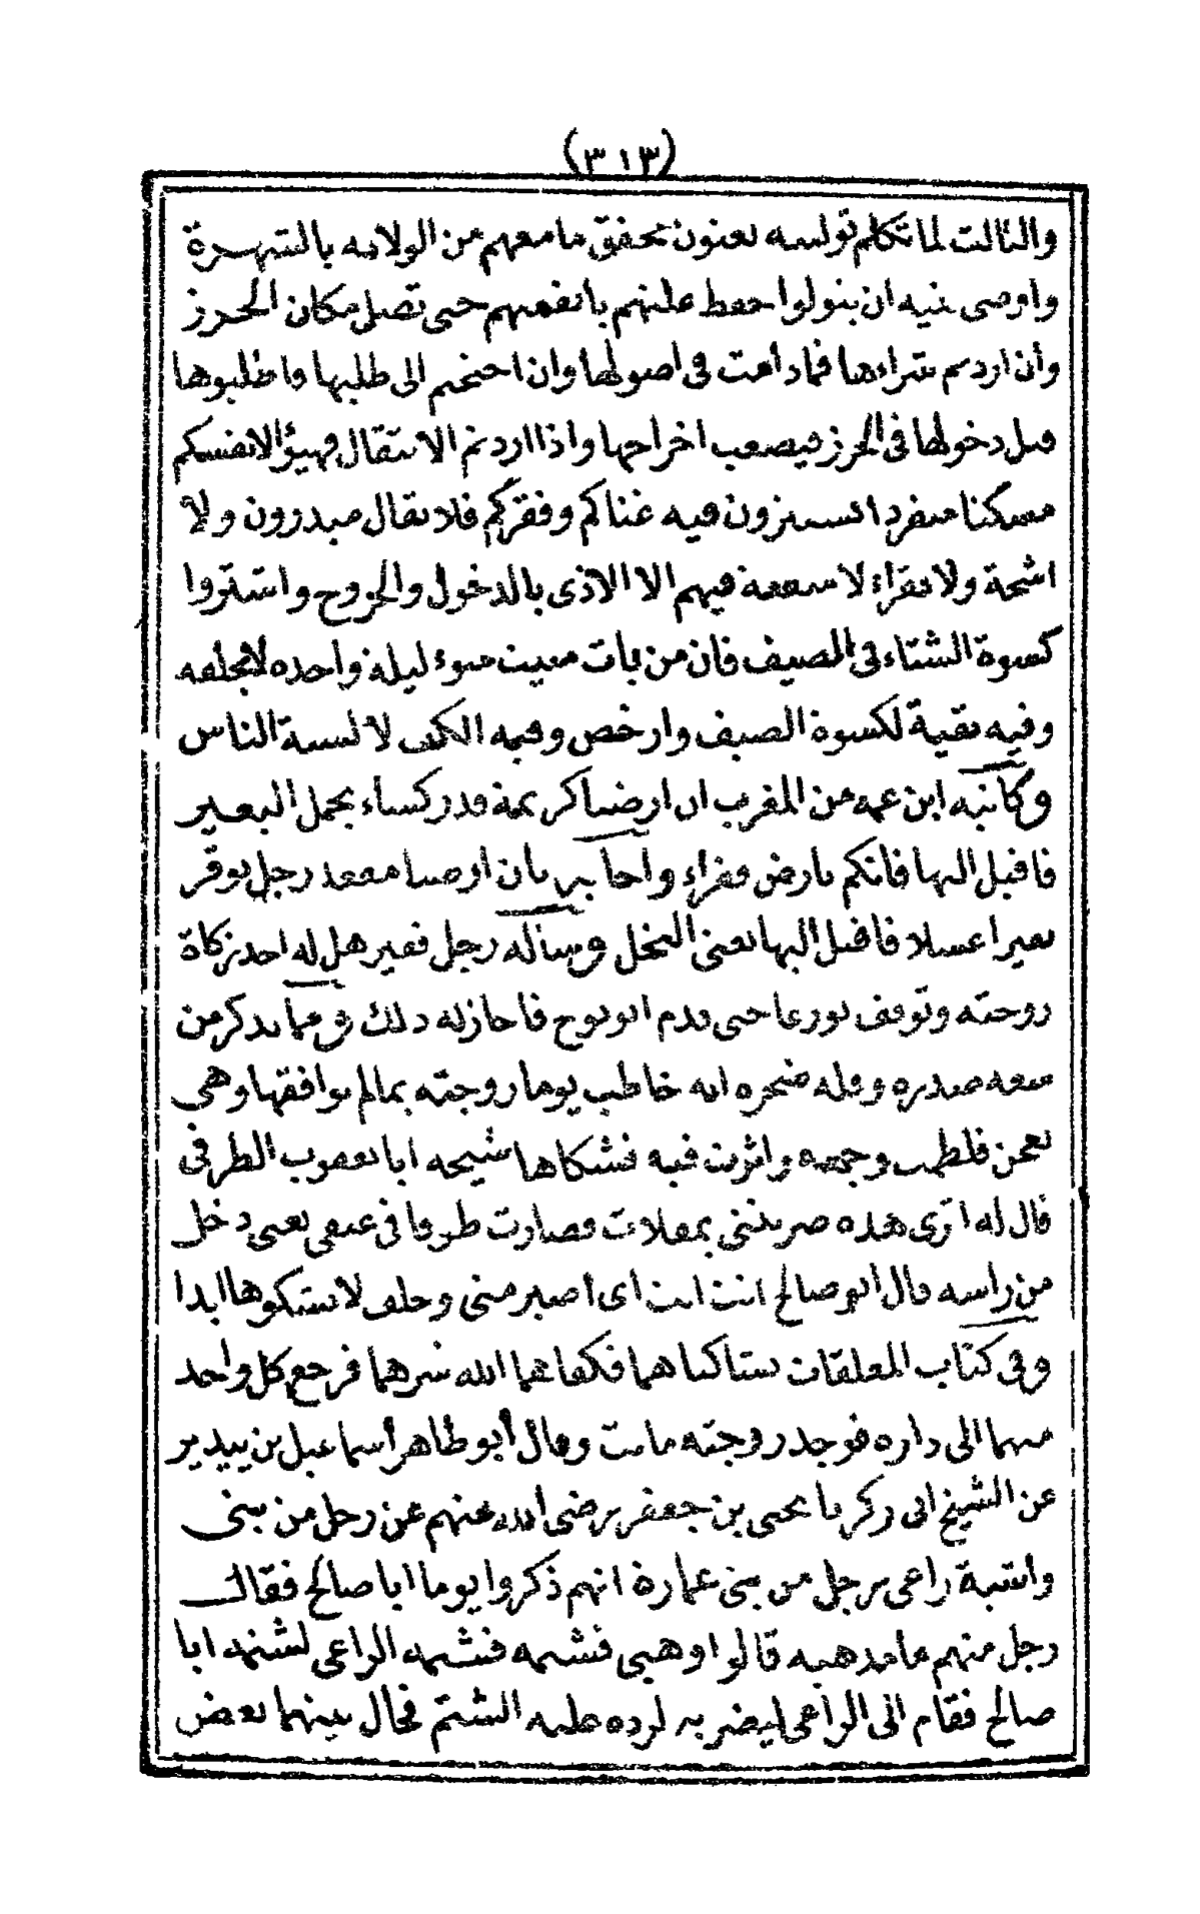 (٣١٣)
والثالث لما تكلم تولسه يعنون تحقق ما معهم من الولاية بالشهرة
واوصى بنيه ان يتولوا حفظ غلتهم بانفسهم حتى تصل مكان الحرز
وان اردتم شراءها فما دامت في اصولها وان احتجتم الى طلبها فاطلبوها
قبل دخولها في الحرز فيصعب اخراجها واذا اردتم الانتقال فهيؤا لانفسكم
مسكنا منفردا تستترون فيه غناكم وفقركم فلا يقال مبذرون ولا
اشحة ولا فقراء لا منفعة فيهم الا الاذى بالدخول والخروج واشتروا
كسوة الشتاء في المصيف فان من بات مبيت سوء ليلة واحدة لا يخلفه
وفيه بقية لكسوة الصيف وارخص وفيه الكبش لا لبسة الناس
وكاتبه ابن عمه من المغرب ان ارضنا كريمة قدر كساء بحمل البعير
فاقبل اليها فانكم بارض فقراء واجابه بان ارضنا مقعد رجل يوقر
بعيرا عسلا فاقبل اليها يعني النخل وساله رجل فقير هل له اخذ زكاة
زوجته وتوقف تورعا حتى قدم ابو نوح فاجاز له ذلك ومما يذكر من
سعة صدره وقلة ضجره انه خاطب يوما زوجته بما لم يوافقها وهي
تعجن فلطمت وجهه واثرت فيه فشكاها شيخه ابا يعقوب الطرفي
قال له اترى هذه ضربتني بمقلات فصارت طوقا في عنقي يعني دخل
من راسه قال ابو صالح انت انت اي اصبر مني وحلف لا يشكوها ابدا
وفي كتاب المعلقات تشاكيا هما فكفاهما الله شرهما فرجع كل واحد
منهما الى داره فوجد زوجته ماتت وقال أبو طاهر أسماعيل بن ييدير
عن الشيخ ابي زكرياء يحيى بن جعفر رضي الله عنهم عن رجل من بني
وانتبة راعي رجل من بني عمارة انهم ذكروا يوما ابا صالح فقال
رجل منهم ما مذهبه قالوا وهبي فشتمه فشتمه الراعي لشتمه ابا
صالح فقام الى الراعي ليضربه لرده عليه الشتم فحال بينهما بعض